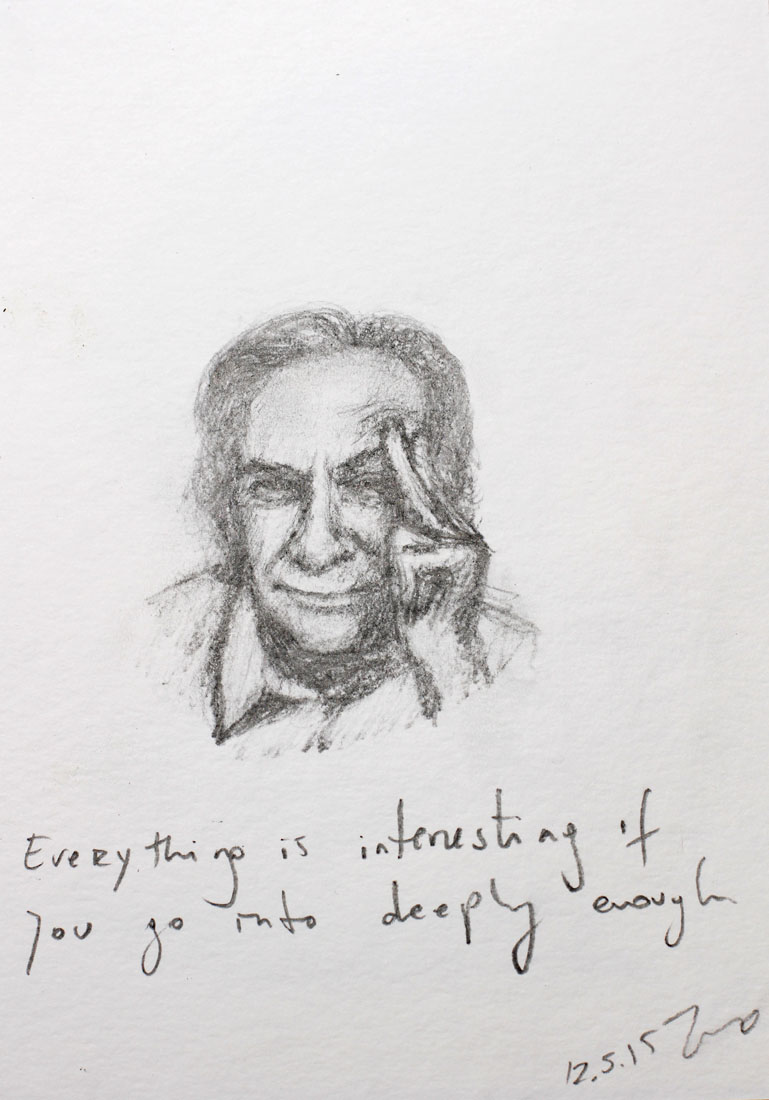 Everything is interesting if
you go into deeply enough
12.5.15